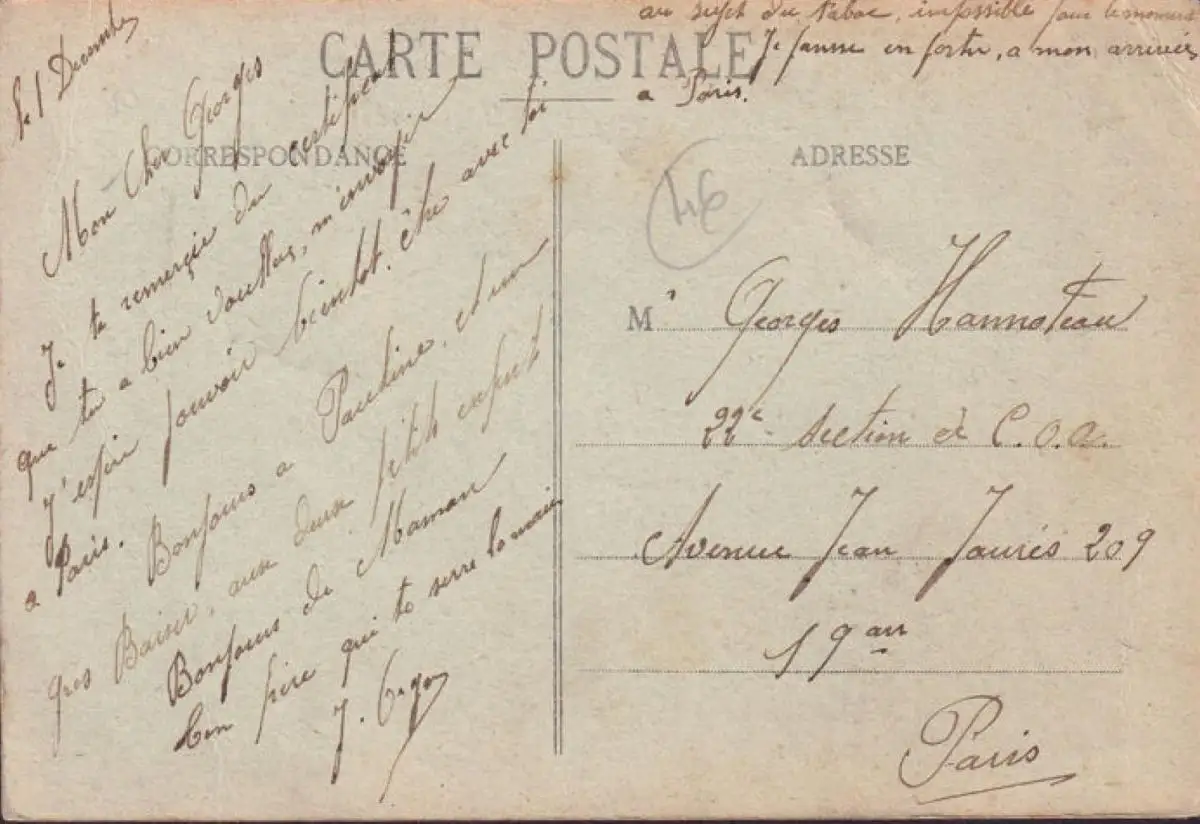 au sujet du tabac, impossible pour le moment
Je puisse en sortir, a mon arrivée
a Paris.
CARTE POSTALE
CORRESPONDANCE
ADRESSE
46
le 1 Decembre
Mon Cher Georges
Je te remerçie du certificat
que tu a bien voullus, m'envoyir
J'espire pouvoir bientot. être avec toi
a Paris.
Bonjours a Pauline, et un
gros Baiser, aux deux petits enfents
Bonjours de Maman
ton pere qui te serre la main
J.
M r Georges Hannoteau
22e section de C.O.a.
Avenue Jean Jaurés 209
19 arr
Paris